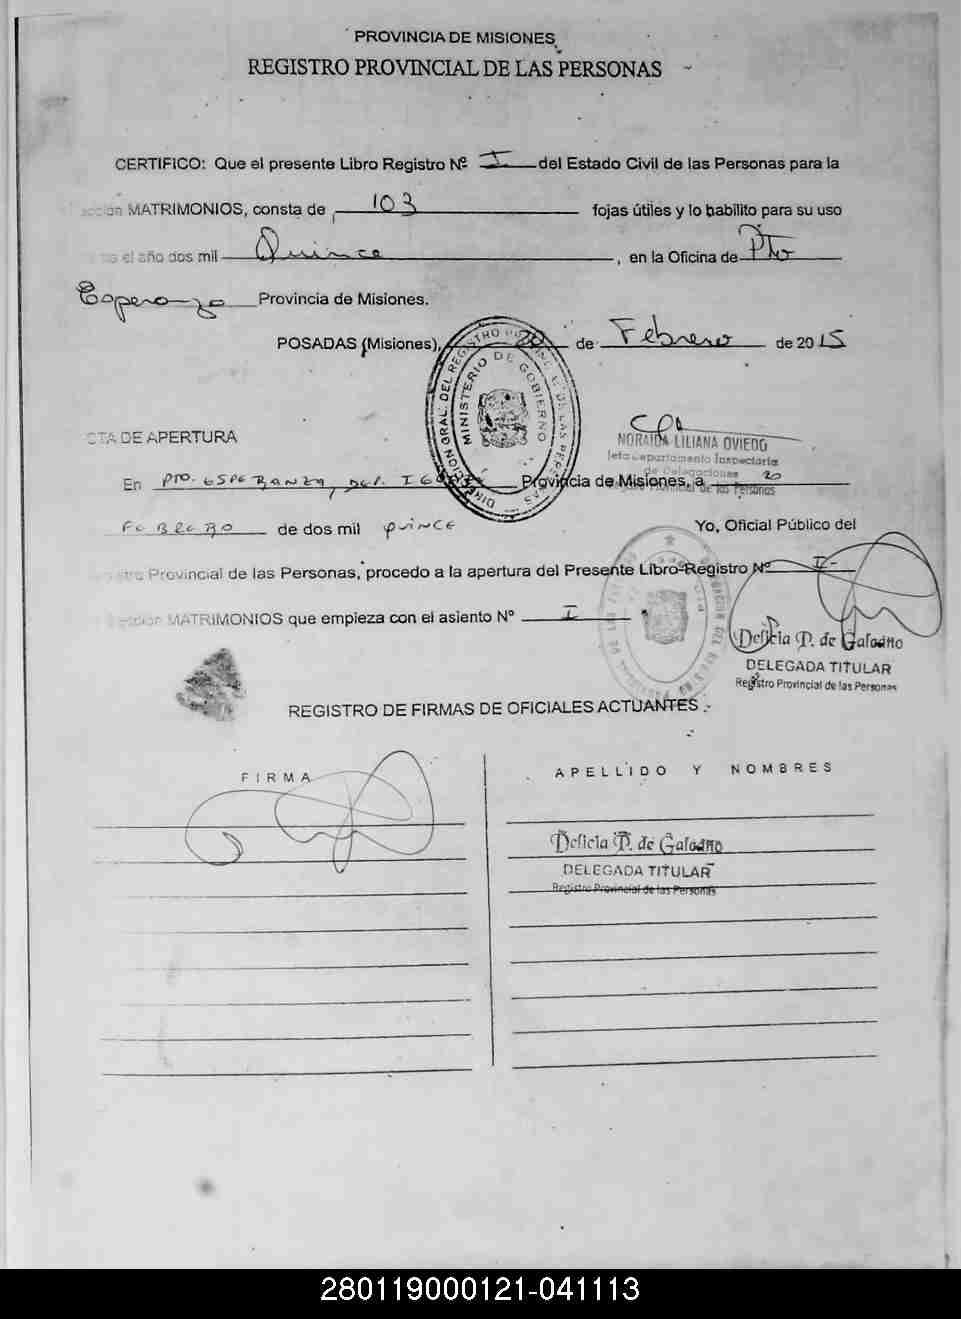 PROVINCIA DE MISIONES
REGISTRO PROVINCIAL DE LAS PERSONAS
CERTIFICO: Que el presente Libro Registro Nº I del Estado Civil de las Personas para la
MATRIMONIOS, consta de 103 fojas útiles y lo habilito para su uso
el año dos mil Quince, en la Oficina de Pto
Esperanza Provincia de Misiones.
POSADAS (Misiones), 20 de Febrero de 2015
DIRECCION GRAL. DEL REGISTRO PROVINCIAL DE LAS PERSONAS
MINISTERIO DE GOBIERNO
NORAIDA LILIANA OVIEDO
Jefa Departamento Inspectoria
de Delegaciones
Registro Provincial de las Personas
CTA DE APERTURA
En Pto. ESPERANZA, Dep. Provincia de Misiones, a 20
FEBRERO de dos mil quince Yo, Oficial Público del
Provincial de las Personas, procedo a la apertura del Presente Libro-Registro Nº I-
MATRIMONIOS que empieza con el asiento Nº I
Delicia P. de
DELEGADA TITULAR
Registro Provincial de las Personas
REGISTRO DE FIRMAS DE OFICIALES ACTUANTES.-
FIRMA
APELLIDO Y NOMBRES
Delicia P. de
DELEGADA TITULAR
Registro Provincial de las Personas
280119000121-041113